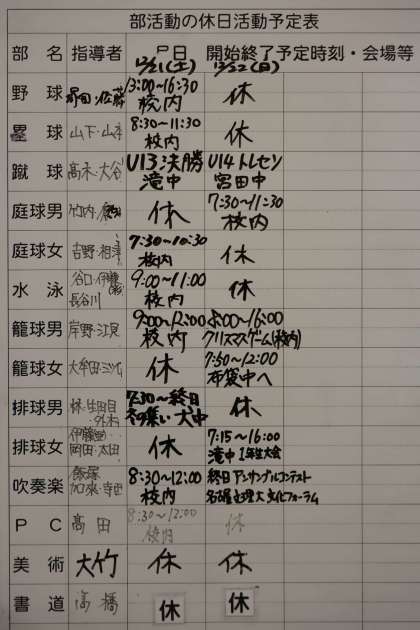 部活動の休日活動予定表
部 名 指導者 月日 開始終了予定時刻・会場等
12/21(土) 12/22(日)
野 球 佐藤 13:00~16:30 校内 休
塁 球 山下・山本 8:30~11:30 校内 休
蹴 球 高木・大谷 U13決勝 滝中 U14トレセン 宮田中
庭球男 竹内・ 休 7:30~11:30 校内
庭球女 吉野・相澤 7:30~10:30 校内 休
水 泳 谷口・伊藤 長谷川 9:00~11:00 校内 休
籠球男 岸野・江良 9:00~12:00 校内 15:00~16:00 クリスマスゲーム(校内)
籠球女 大牟田・三ツ石 休 7:50~12:00 布袋中へ
排球男 林・生田目 7:30~終日 冬の集い 大中 休
排球女 伊藤 岡田・太田 休 7:15~16:00 滝中 1年生大会
吹奏楽 飯塚 加来・寺西 8:30~12:00 校内 終日 アンサンブルコンテスト 大 文化フォーラム
P C 高田 8:30~12:00 校内 休
美 術 大竹 休 休
書 道 高橋 休 休